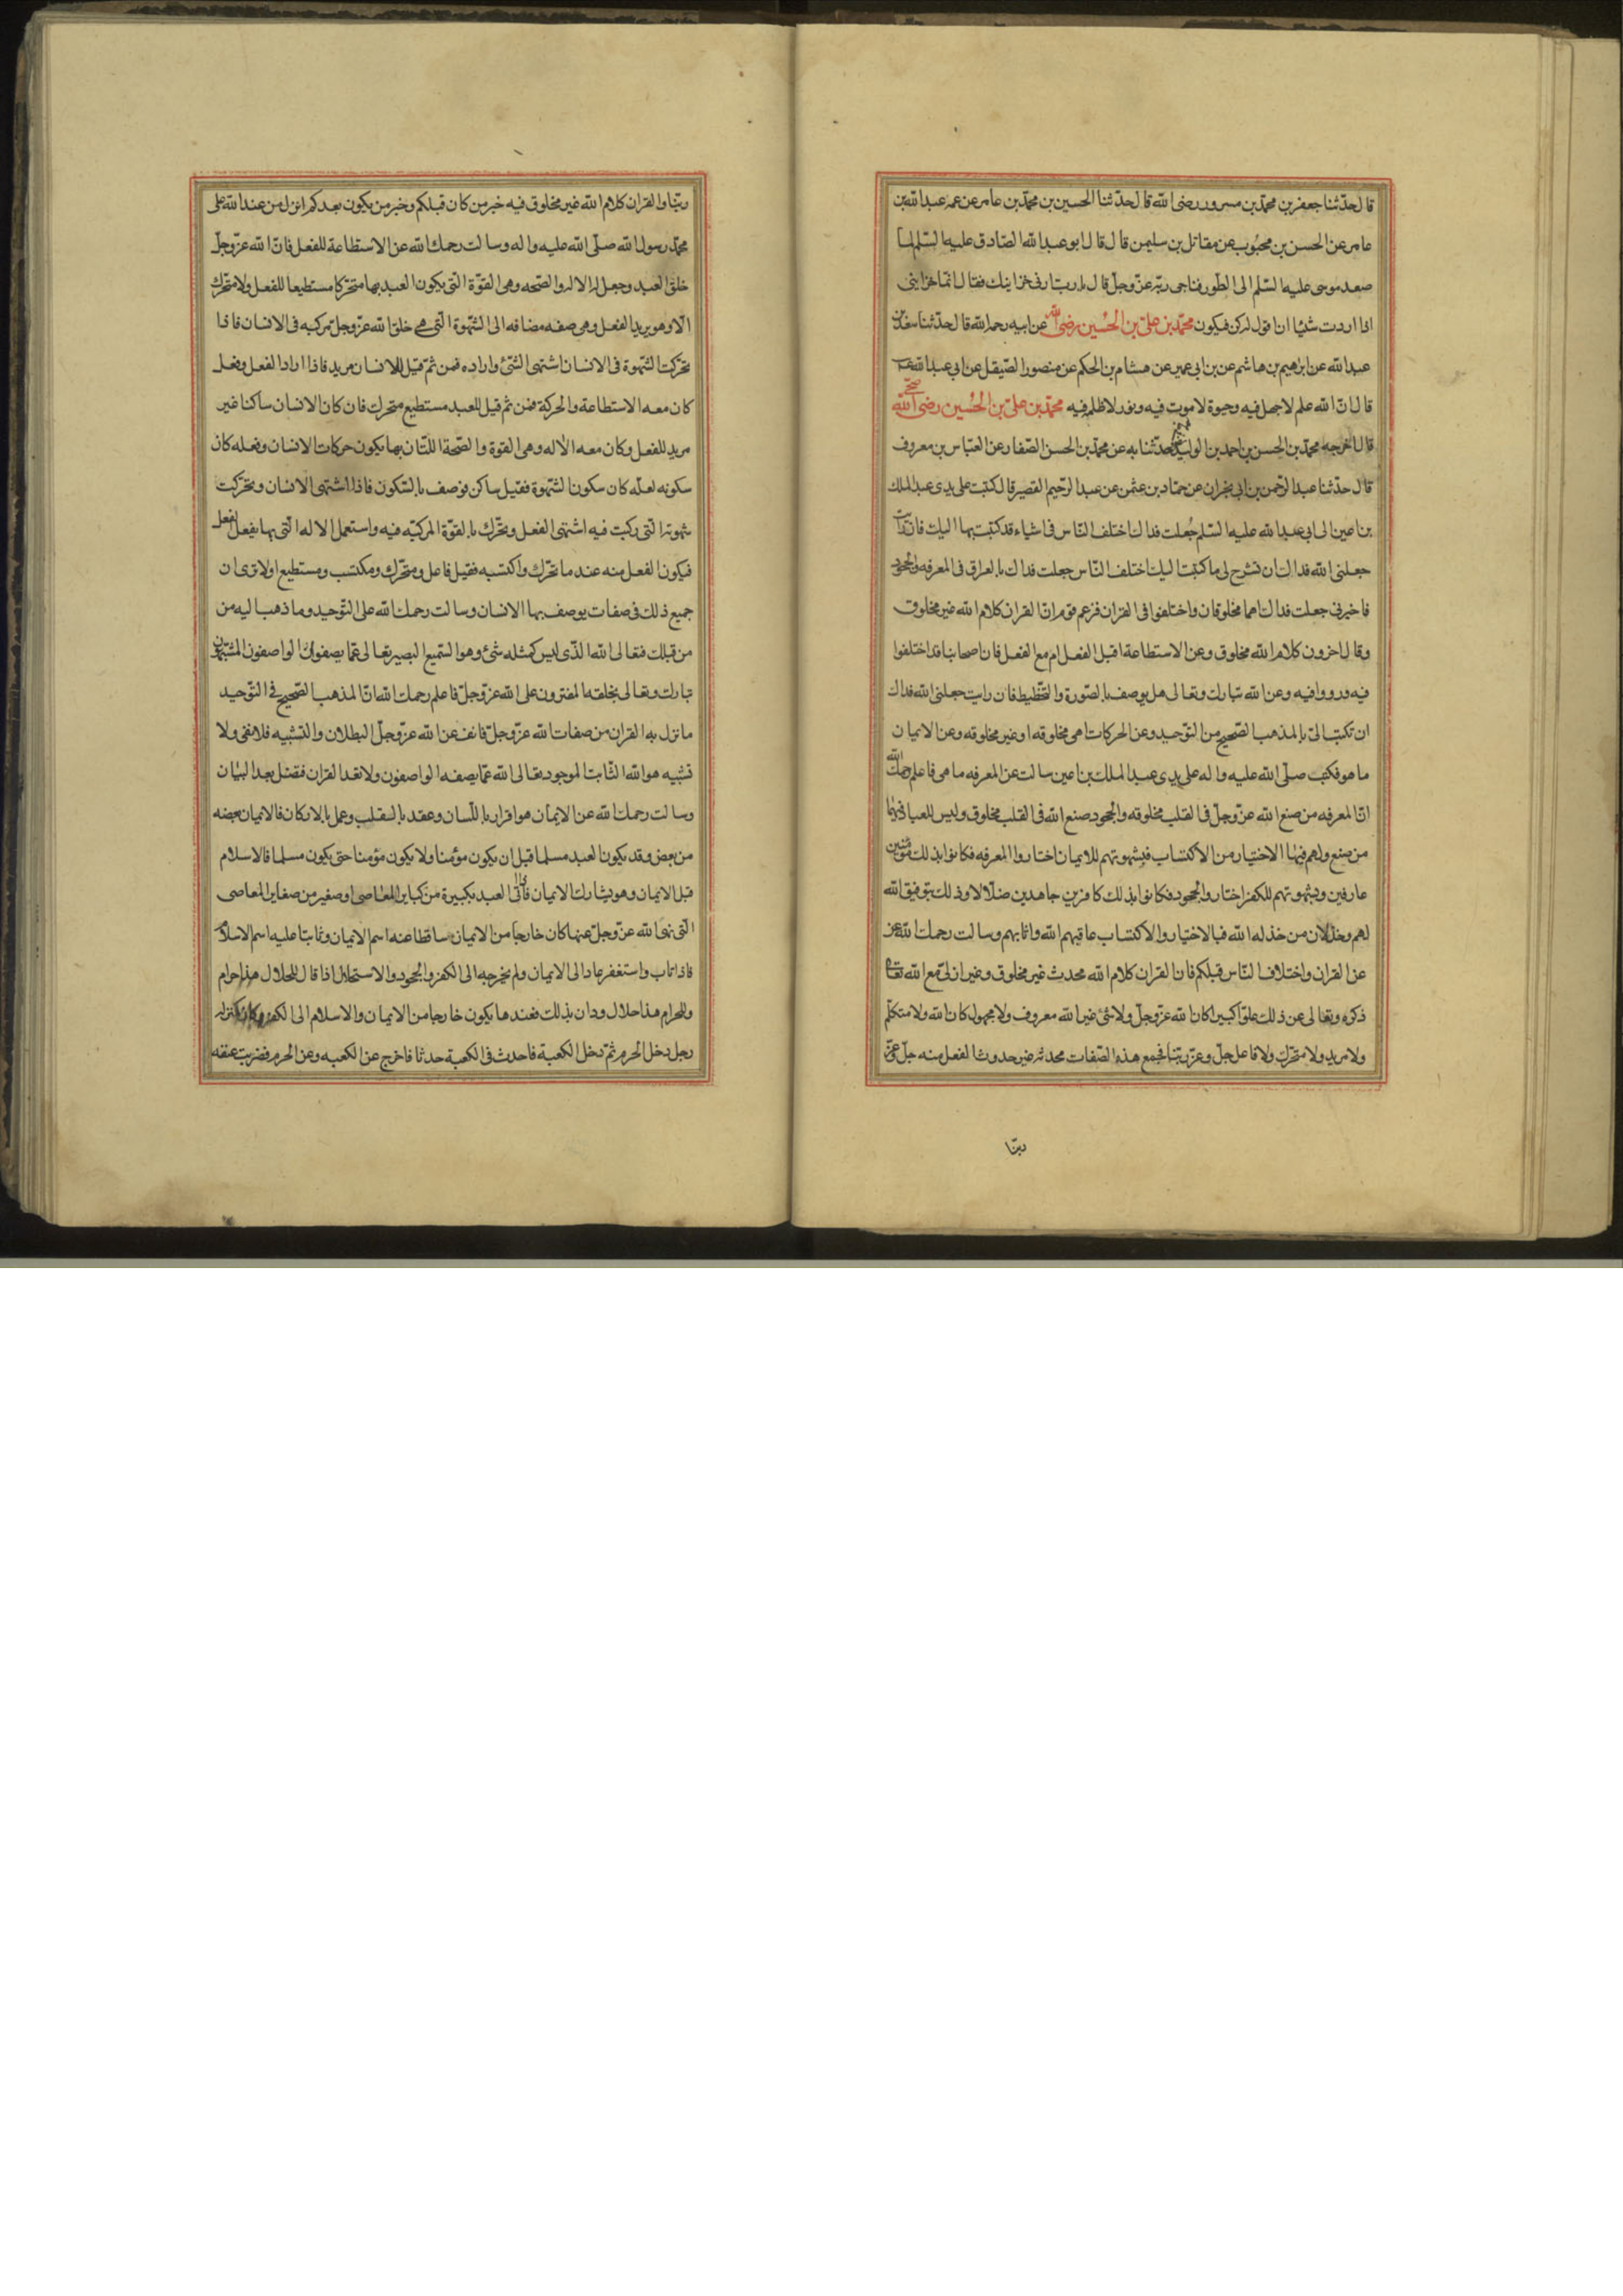 قال حدّثنا جعفر بن محمّد بن مسرور رضى الله قال حدّثنا الحسين بن محمّد بن عامر عن عمه عبد الله بن
عامر عن الحسن بن محبوب عن مقاتل بن سليمن قال قال ابو عبد الله الصّادق عليه السّلم لمّا
صعد موسى عليه السّلم الى الطّور فناجى ربّه عزّ وجلّ قال يا ربّ ارنى خزاينك فقال انّما خزاينى
اذا اردت شيئا ان اقول له كن فيكون محمّد بن علىّ بن الحُسين رضى الله عن ابيه رحمه الله قال حدّثنا سعد بن
عبد الله عن ابرهيم بن هاشم عن بن ابى عمير عن هشام بن الحكم عن منصور الصّيقل عن ابى عبد الله
قال انّ الله علم لا جهل فيه وحيوة لا موت فيه ونور لا ظلمه فيه محمّد بن علىّ بن الحُسين رضى الله
قال اخرجه محمّد بن الحسن بن احمد بن الوليد حدّثنا به عن محمّد بن الحسن الصّفار عن العبّاس بن معروف
قال حدّثنا عبد الرّحمن بن ابى نجران عن حمّاد بن عثمن عن عبد الرّحيم القصير قال كتبت على يدى عبد الملك
بن اعين الى ابى عبد الله عليه السّلم جُعلت فداك اختلف النّاس فى اشياء قد كتبت بها اليك فان رايت
جعلنى الله فداك ان تشرح لى ما كتبت اليك اختلف النّاس جعلت فداك بالعراق فى المعرفه والجحود
فاخبرنى جعلت فداك اهما مخلوقان واختلفوا فى القران فزعم قوم انّ القران كلام الله غير مخلوق
وقال اخرون كلام الله مخلوق وعن الاستطاعة اقبل الفعل ام مع الفعل فان اصحابنا قد اختلفوا
فيه ورووا فيه وعن الله تبارك وتعالى هل يوصف بالصّورة والتّخطيط فان رايت جعلنى الله فداك
ان تكتب الىّ بالمذهب الصّحيح من التّوحيد وعن الحركات اهى مخلوقه او غير مخلوقه وعن الايمان
ما هو فكتب صلّى الله عليه واله على يدى عبد الملك بن اعين سالت عن المعرفه ما هى فاعلم رحمك الله
انّ المعرفه من صنع الله عزّ وجلّ فى القلب مخلوقه والجحود صنع الله فى القلب مخلوق وليس للعباد فيهما
من صنع ولهم فيهما الاختيار من الاكتساب فبشهوتهم للايمان اختاروا المعرفه فكانوا بذلك مؤمنين
عارفين وبشهوتهم للكفر اختاروا الجحود فكانوا بذلك كافرين جاهدين ضلّالا وذلك بتوفيق الله
لهم وخذلان من خذله الله فبالاختيار والاكتساب عاقبهم الله واثابهم وسالت رحمك الله
عن القران واختلاف النّاس قبلكم فان القران كلام الله محدث غير مخلوق وغير ازلىّ مع الله تعالى
ذكره وتعالى عن ذلك علوّا كبيرا كان الله عزّ وجلّ ولا شئ غير الله معروف ولا مجهول كان الله ولا متكلّم
ولا مريد ولا متحّرك ولا فاعل جلّ وعزّ ربّنا فجميع هذه الصّفات محدثه غير حدوث الفعل منه جلّ وعزّ
ربّنا
ربّنا والقران كلام الله غير مخلوق فيه خبر من كان قبلكم وخبر من يكون بعدكم انزل من عند الله على
محمّد رسول الله صلّى الله عليه واله وسالت رحمك الله عن الاستطاعة للفعل فانّ الله عزّ وجلّ
خلق العبد وجعل له الاله والصّحه وهى القوّة الّتى يكون العبد بها متحّركا مستطيعا للفعل ولا متحّرك
الّا وهو يريد الفعل وهى صفه مضافه الى الشّهوة الّتى هى خلق الله عزّ وجلّ مركبه فى الانسان فاذا
تحّركت الشّهوة فى الانسان اشتهى الشّئ واراده فمن ثمّ قيل للانسان مريد فاذا اراد الفعل وفعل
كان معه الاستطاعة والحركة فمن ثمّ قيل للعبد مستطيع متحرك فان كان الانسان ساكنا غير
مريد للفعل وكان معه الاله وهى القوة والصّحة اللّتان بهما يكون حركات الانسان وفعله كان
سكونه لعلّه كان سكون الشّهوة فقيل ساكن فوصف بالسّكون فاذا اشتهى الانسان وتحّركت
شهوته الّتى ركبت فيه اشتهى الفعل وتحّرك بالقوّة المركبّه فيه واستعمل الاله الّتى بها يفعل الفعل
فيكون الفعل منه عند ما تحّرك واكتسبه فقيل فاعل ومتحّرك ومكتسب ومستطيع اولا ترى ان
جميع ذلك فى صفات يوصف بها الانسان وسالت رحمك الله على التّوحيد وما ذهب اليه من
من قبلك فتعالى الله الّذى ليس كمثله شئ وهو السّميع البصير تعالى عمّا يصفون الواصفون المشبّهون
تبارك وتعالى بخلقه المفترون على الله عزّ وجلّ فاعلم رحمك الله انّ المذهب الصّحيح فى التّوحيد
ما نزل به القران من صفات الله عزّ وجلّ فانف عن الله عزّ وجلّ البطلان والتّشبيه فلا نفى ولا
تشبيه هو الله الثّابت الموجود تعالى الله عمّا يصفه الواصفون ولا تعد القران فتضل بعد البيان
وسالت رحمك الله عن الايمان هو اقرار باللّسان وعقد بالقلب وعمل بالاركان فالايمان بعضه
من بعض وقد يكون العبد مسلما قبل ان يكون مؤمنا ولا يكون مؤمنا حتى يكون مسلما فالاسلام
قبل الايمان وهو يشارك الايمان فاذا اتى العبد بكبيرة من كباير المعاصى او صغير من صغاير المعاصى
الّتى نهى الله عزّ وجلّ عنها كان خارجا من الايمان ساقطا عنه اسم الايمان وثابتا عليه اسم الاسلام
فاذا تاب واستغفر عاد الى الايمان ولم يخرجه الى الكفر والجحود والاستحلال اذا قال للحلال هذا حرام
وللحرام هذا حلال ودان بذلك فعندها يكون خارجا من الايمان والاسلام الى الكفر وكان بمنزلة
رجل دخل الحرم ثمّ دخل الكعبة فاحدث فى الكعبة حدثا فاخرج عن الكعبه وعن الحرم فضربت عنقه